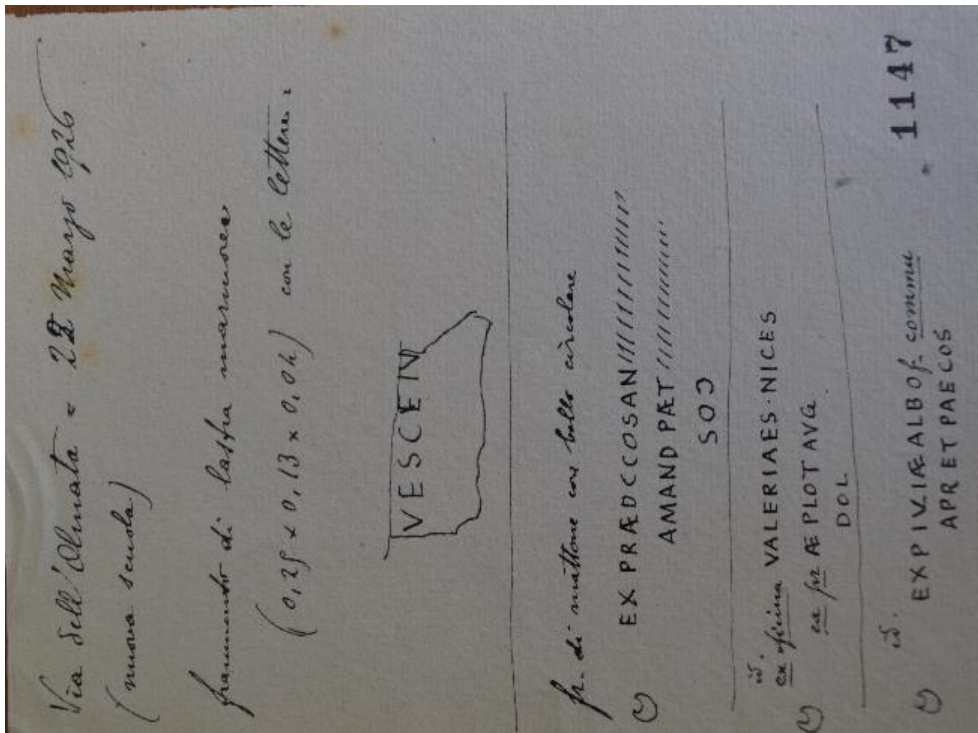 Via dell'Olmata = 22 Marzo 1926
(nuova scuola)
frammento di lastra marmorea
(0,25 x 0,13 x 0,04) con le lettere:
VESCEN
fr. di mattone con bollo circolare
EX PRÆDCCOSAN
AMANDPÆT
COS
id.
ex oficina VALERIAES·NICES
ex pr ÆPLOTAVG.
DOL
id.
EXPIVLIÆALBOf. commu
APRETPAECOS
1147